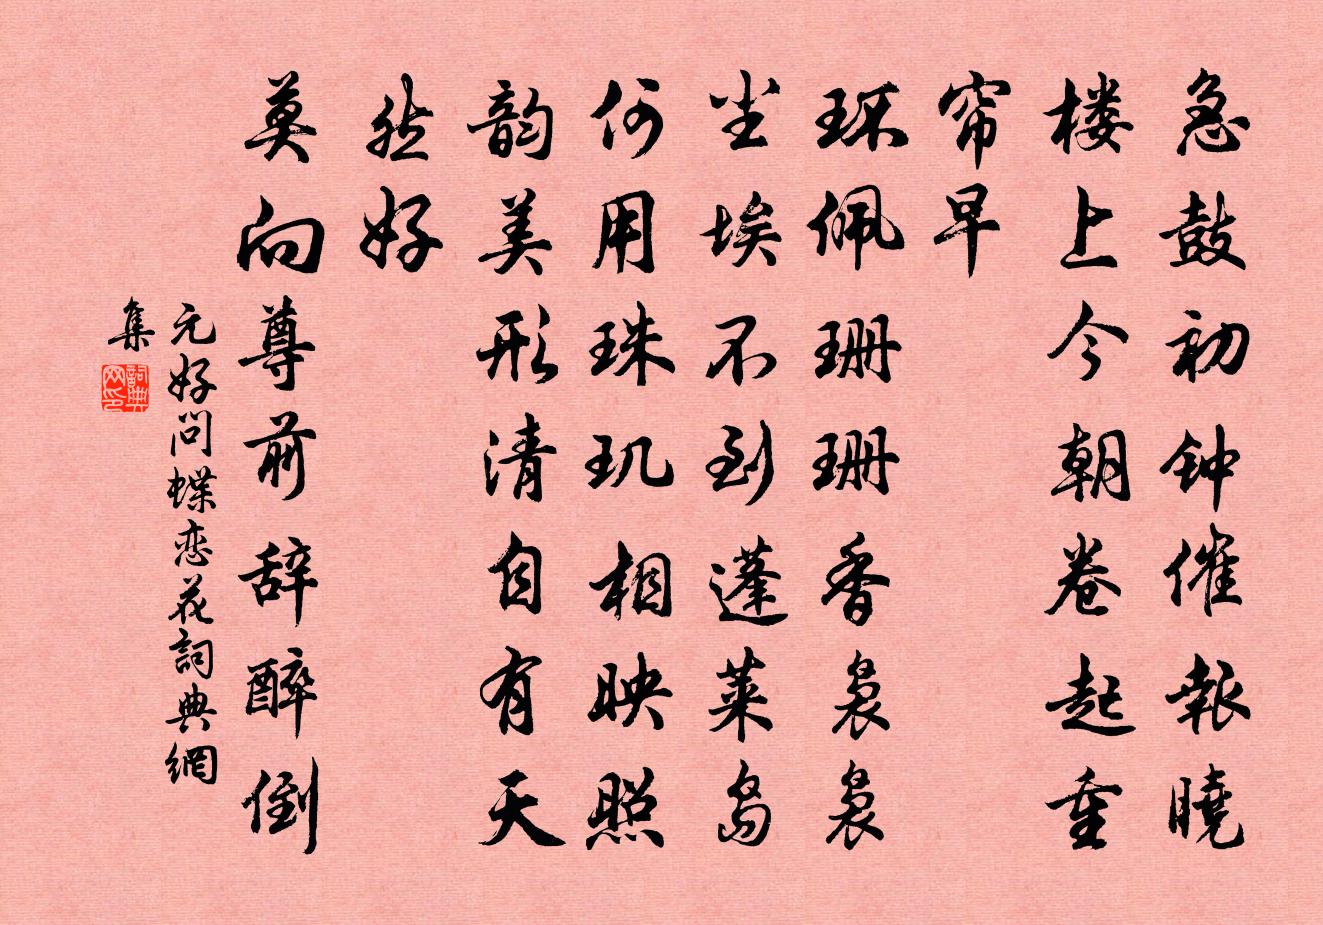 急鼓初钟催報曉
楼上今朝卷起重
帘早
环佩珊珊香袅袅
尘埃不到蓬莱岛
何用珠玑相映照
韵美形清自有天
然好
莫向尊前辞醉倒
元好问蝶恋花詞典網
集
詞典
网印